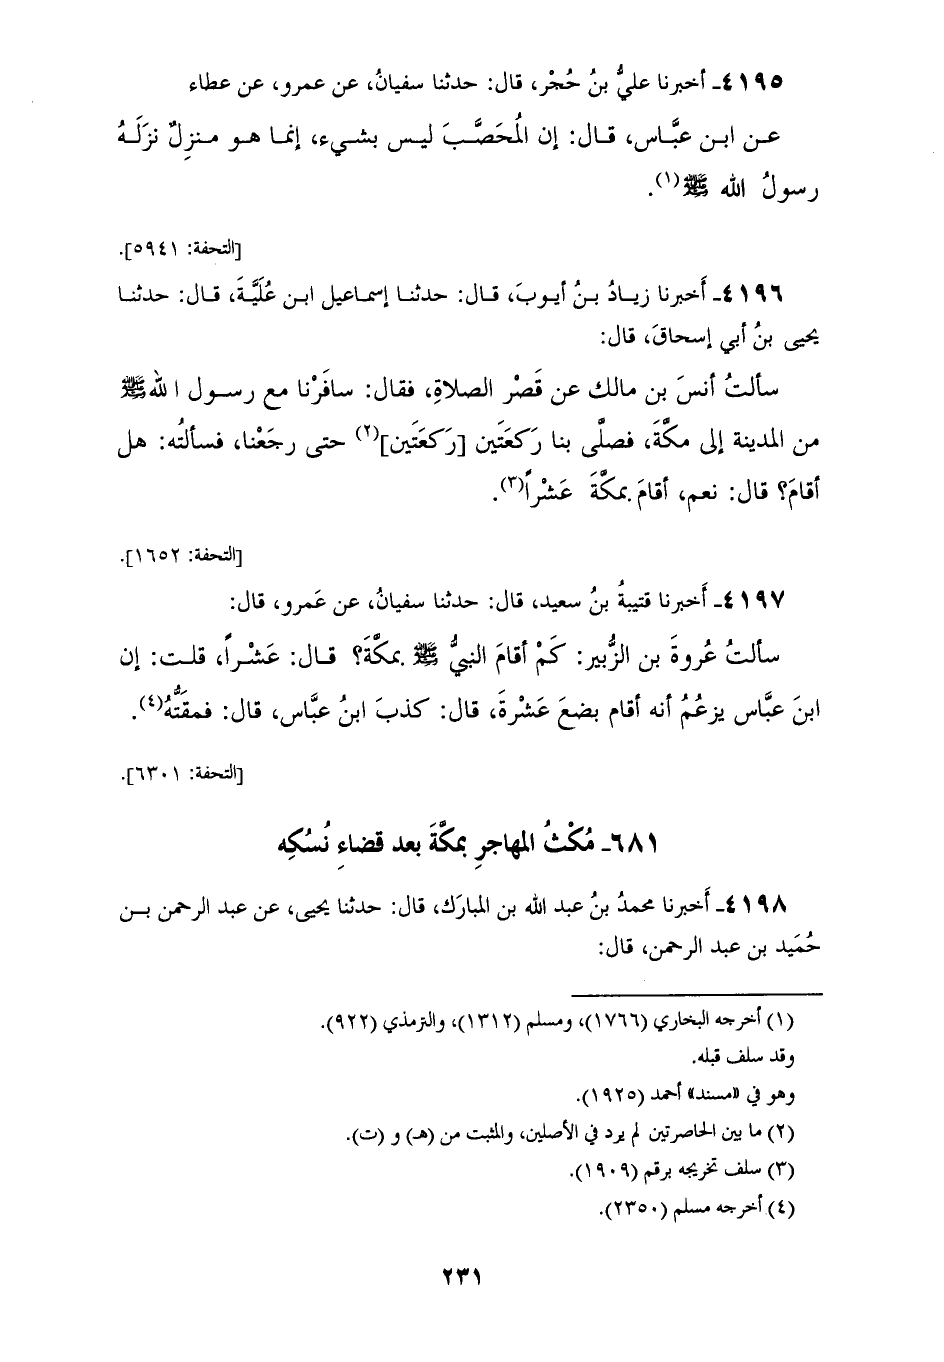 ٤١٩٥ـ أخبرنا عليُّ بنُ حُجْر، قال: حدثنا سفيانُ، عن عمرو، عن عطاء
عـن ابـن عبَّـاس، قـال: إن المُحَصَّـبَ ليـس بشـيء، إنمـا هـو مـنزِلٌ نزَلَـهُ
رسولُ الله ﷺ(١).
[التحفة: ٥٩٤١].
٤١٩٦ـ أَخبرنا زيـادُ بـنُ أيـوبَ، قـال: حدثنـا إسمـاعيل ابـن عُلَيَّـةَ، قـال: حدثنـا
يحيى بنُ أبي إسحاقَ، قال:
سألتُ أنسَ بن مالك عن قَصْر الصلاةِ، فقال: سافَرْنا مع رسـول الله ﷺ
من المدينة إلى مكَّةَ، فصلَّى بنا رَكعَتَين [رَكعَتَين](٢) حتى رجَعْنا، فسألتُه: هل
أقامَ؟ قال: نعم، أقامَ بمكَّةَ عَشْراً(٣).
[التحفة: ١٦٥٢].
٤١٩٧ـ أَخبرنا قتيبةُ بنُ سعيد، قال: حدثنا سفيانُ، عن عَمرو، قال:
سألتُ عُروةَ بن الزُّبير: كَمْ أقامَ النبيُّ ﷺ بمكَّةَ؟ قـال: عَشْـراً، قلـت: إن
ابنَ عبَّاس يزعُمُ أنه أقام بضعَ عَشْرةَ، قال: كذبَ ابنُ عبَّاس، قال: فمقَتُّهُ(٤).
[التحفة: ٦٣٠١].
٦٨١ـ مُكْثُ المهاجرِ بمكَّةَ بعد قضاءِ نُسُكِه
٤١٩٨ـ أَخبرنا محمدُ بنُ عبد الله بن المبارَك، قال: حدثنا يحيى، عن عبد الرحمن بـن
حُمَيد بن عبد الرحمن، قال:
(١) أخرجه البخاري (١٧٦٦)، ومسلم (١٣١٢)، والترمذي (٩٢٢).
وقد سلف قبله.
وهو في «مسند» أحمد (١٩٢٥).
(٢) ما بين الحاصرتين لم يرد في الأصلين، والمثبت من (هـ) و (ت).
(٣) سلف تخريجه برقم (١٩٠٩).
(٤) أخرجه مسلم (٢٣٥٠).
٢٣١